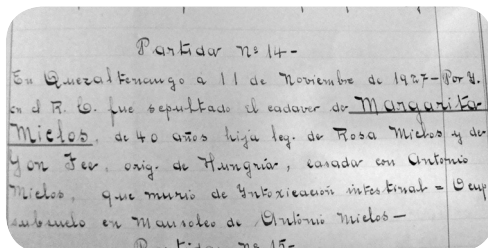 Partida nº 14-
En Quezaltenango a 11 de Noviembre de 1927- Por Y.
en el R. C. fue sepultado el cadaver de Margarita
Mielos, de 40 años hija leg. de Rosa Mielos y de
Yon Fee, orig. de Hungria, casada con Antonio
Mielos, que murio de Yntoxicación intestinal = Ocup
subsuelo en Mausoleo de Antonio Mielos-
Partida nº 15-